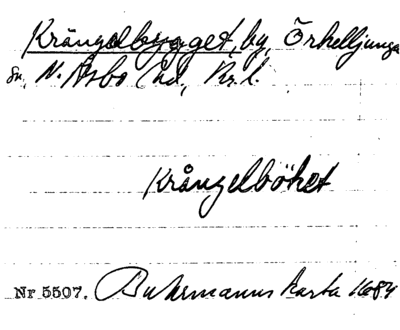 Krångelbygget, by, Örkelljunga
sn, N. Åsbo hd, Kr. l.
Krångelböket
Nr 5507. Buhrmanns karta 1684